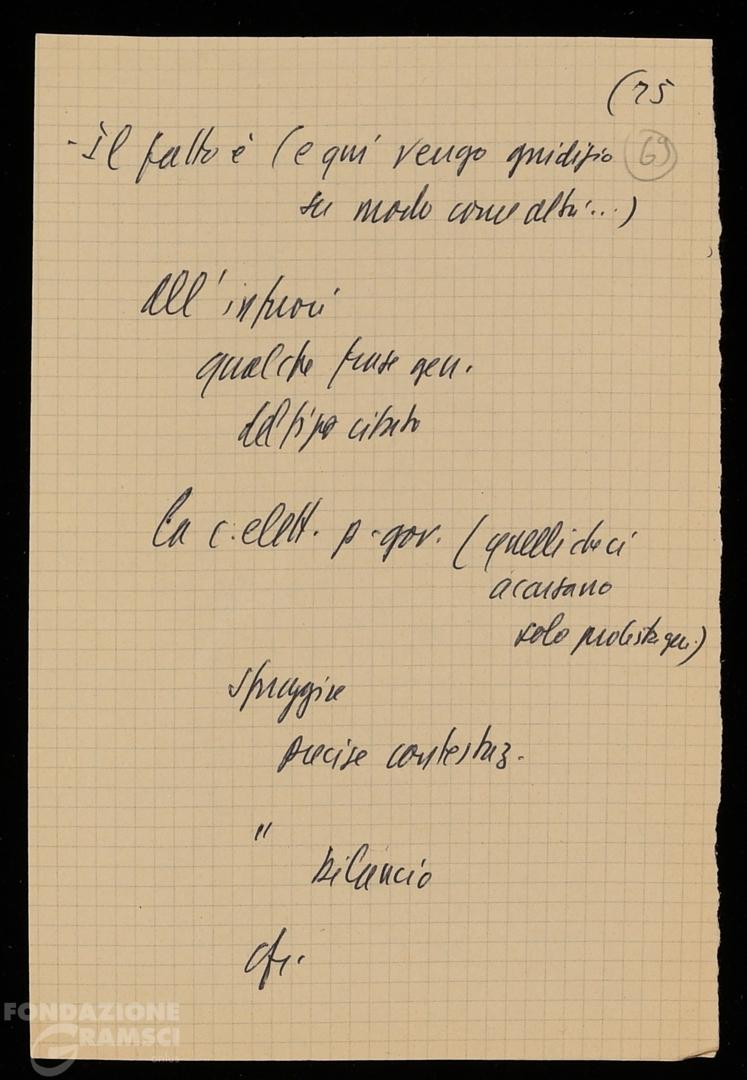 (75
- Il fatto è (e qui vengo giudizio
69
su modo come altri...)
All'infuori
qualche frase gen.
del tipo citato
la c. elett. p. gov. (quelli che ci
accusano
solo protesta gen.)
sfuggire
precise contestaz.
"
bilancio
cfr.
FONDAZIONE
GRAMSCI
onlus